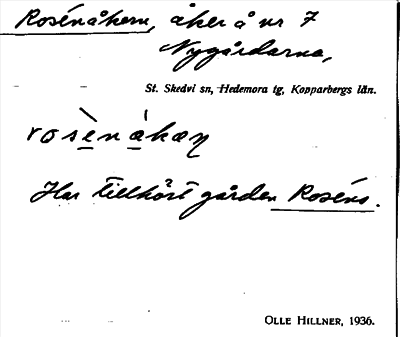 Rosénåkern, åker å nr 7
Nygårdarna,
St. Skedvi sn, Hedemora tg, Kopparbergs län.
rosènákæṇ
Har tillhört gården Roséns.
OLLE HILLNER, 1936.